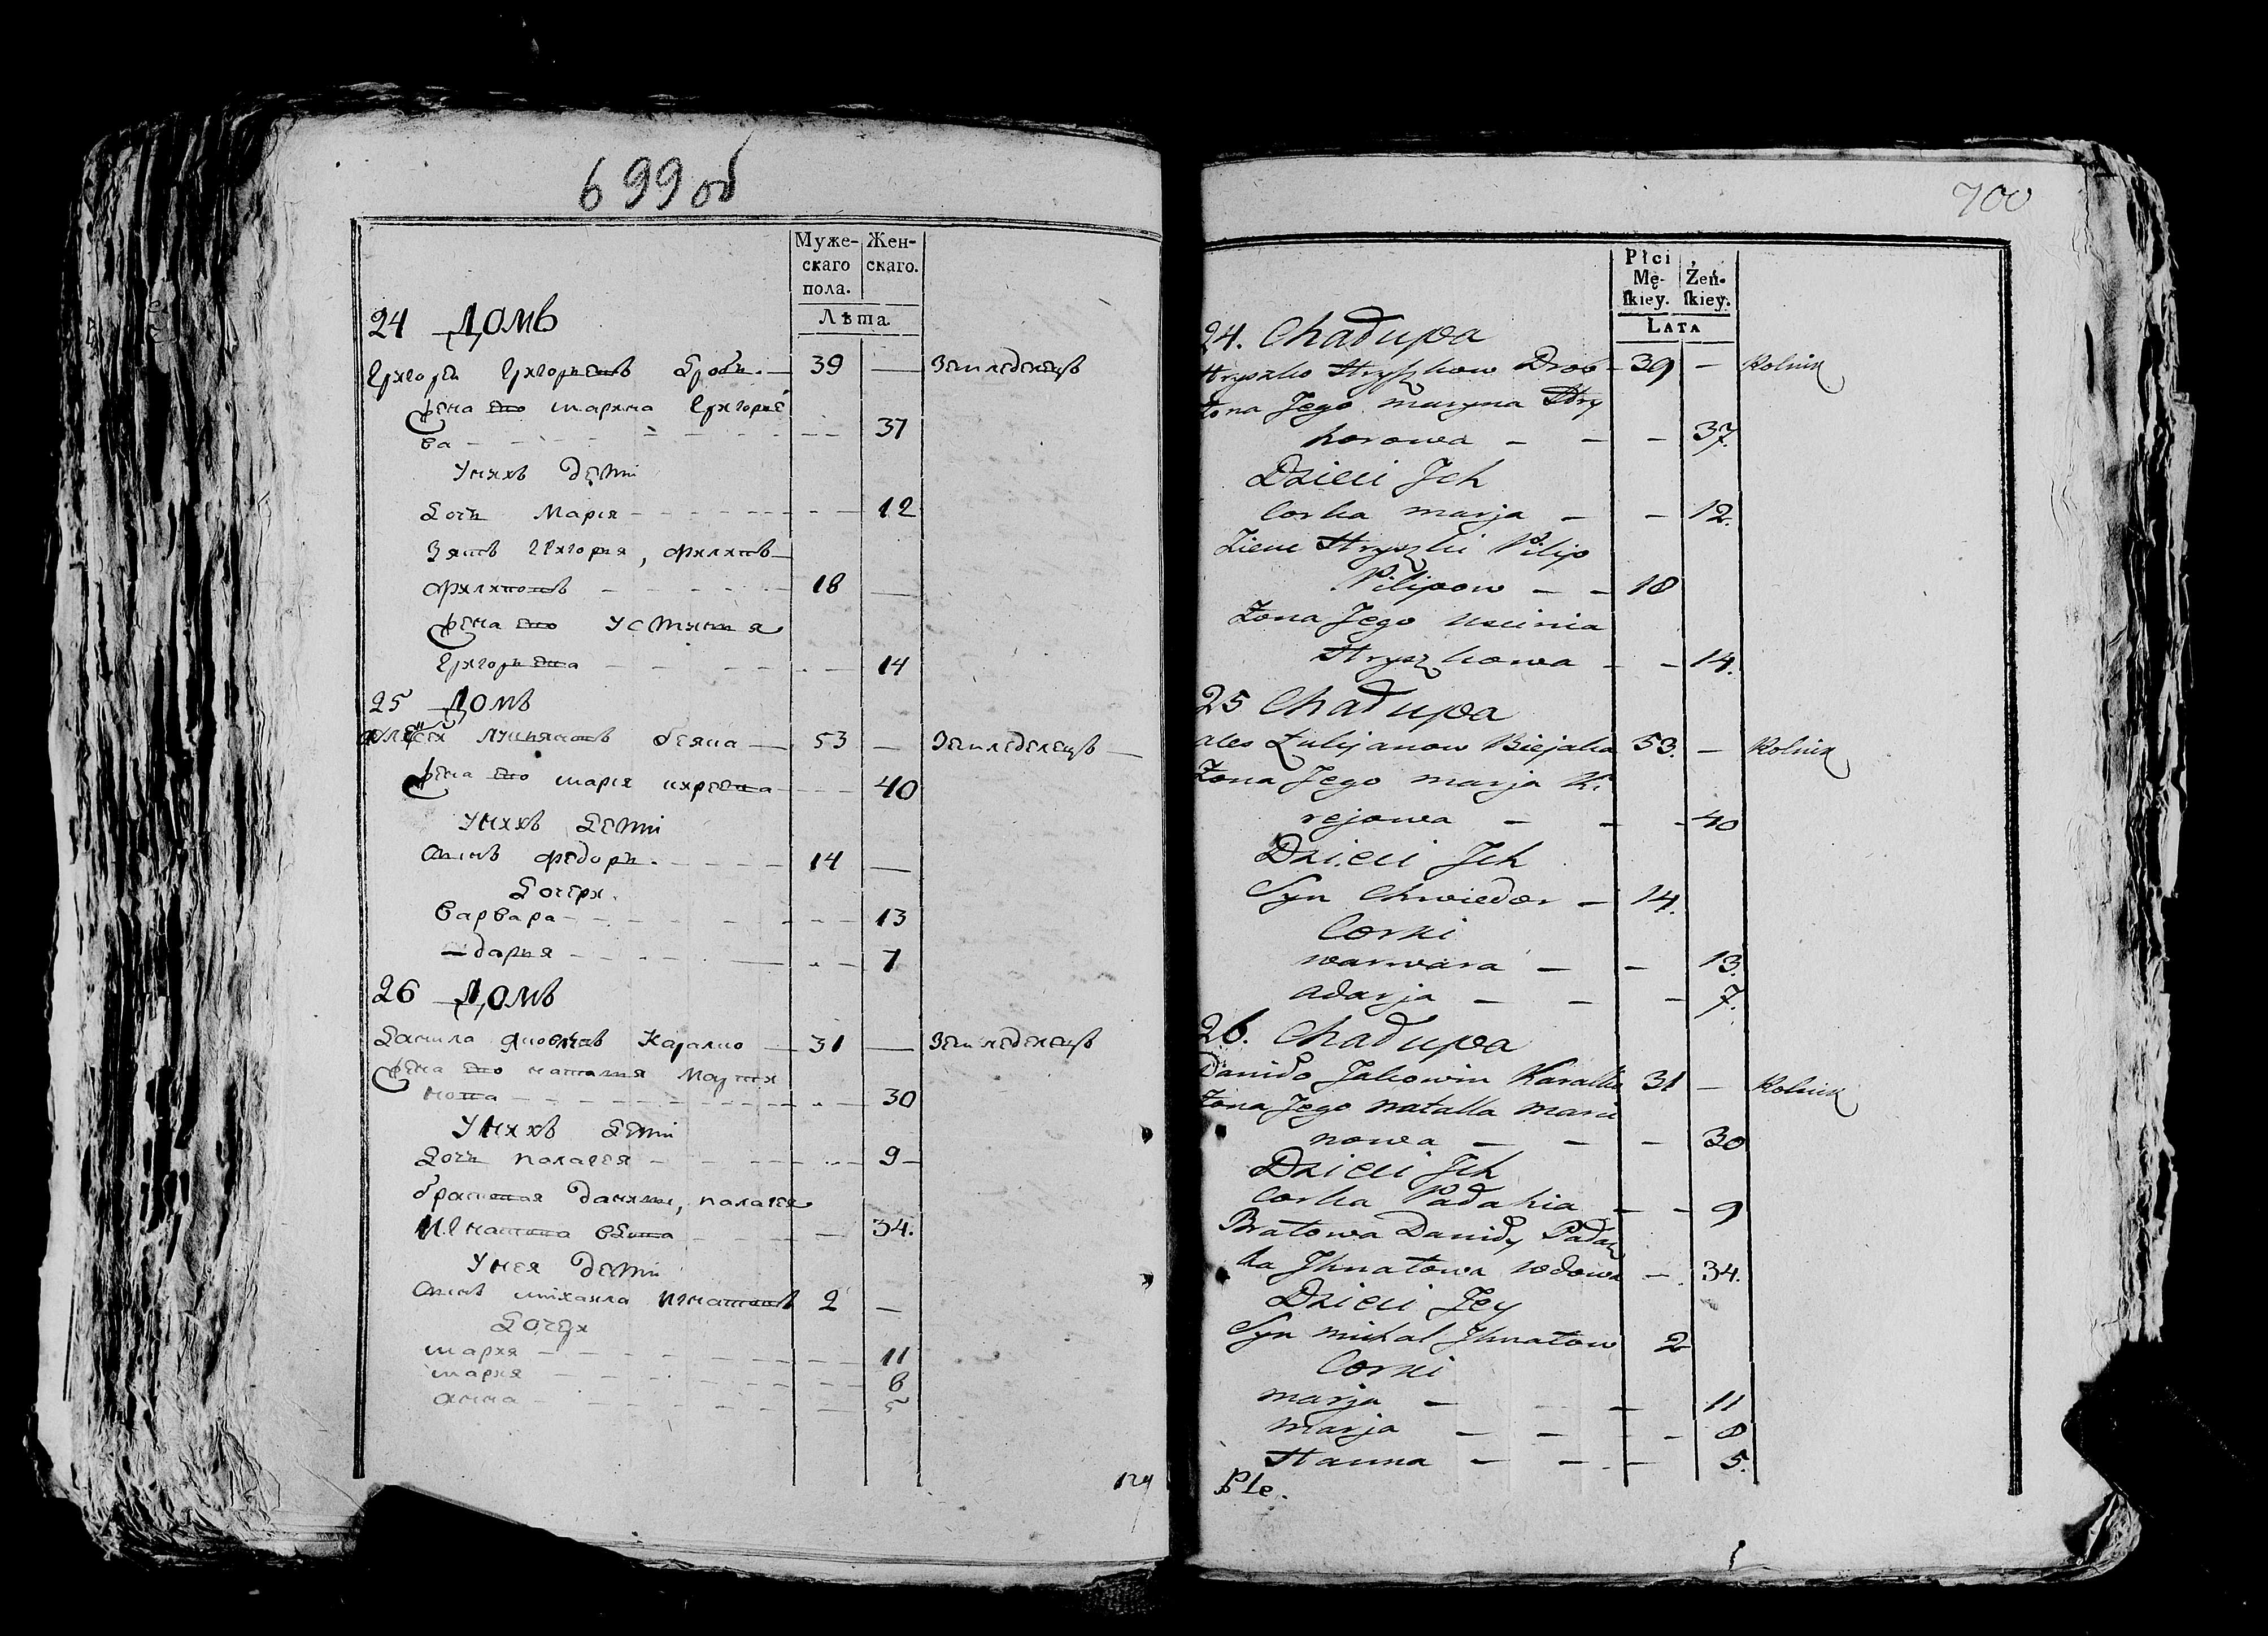 699об
Муже- Жен-
скаго скаго.
пола.
Лѣта
24 Домъ
Григорей Григорьевъ Дробъ. — 39 — Земледелецъ
Жена его марина Григорье
ва - - - 37
Унихъ дети
Дочь Мария - - - 12
Зять Григория, филипъ
филиповъ - - - 18 —
Жена его Устиния
Григорьева - - - 14
25 Домъ
Алексей Лукьяновъ беяка — 53 — Земледелецъ —
Жена его мария киреева - - 40
Унихъ Дети
Сынъ федоръ. - - - 14 —
Дочери.
Варвара - - - 13
дарья - - - 7
26 Домъ
Данила Яковлевъ Каралко — 31 — Земледелецъ
Жена его наталия Марти
нова - - - 30
Унихъ Дети
Дочь палагея - - - 9 -
братовая данилы, палагея
Игнатова вдова - - - 34.
Унея дети
Сынъ михаила Игнатовъ 2 —
Дочери
мария - - - 11
мария - - - 8
анна - - - 5
700
Płci Żeń-
Mę- skiey.
skiey.
LATA
24. Chadupa
Hryszko Hryszkow Drob - 39 - Rolnik
Żona Jego maryna Hry
horowa - - - 37.
Dzieci Jch
Corka marja - - 12.
Ziens Hryszki Pilip
Pilipow - - 18
Żona Jego uscinia
Hryszkowa - - 14.
25 Chadupa
ales Łukjanow Biejaka 53. - Rolnik
Żona Jego marja Ki
rejowa - - - 40
Dzieci Jch
Syn Chwiedor - 14.
Corki
warwara - - 13.
adarja - - - 7.
26. Chadupa
Daniło Jakowiw Karalko 31 - Rolnik
Żona Jego natalla marci
nowa - - - 30
Dzieci Jch
Corka Padahia - - 9
Bratowa Daniły Padah
ka Jhnatowa wdowa - 34.
Dzieci Jey
Syn michal Jhnatow 2
Corki
marja - - 11
marja - - - 8
Hanna - - - 5.
Ple.